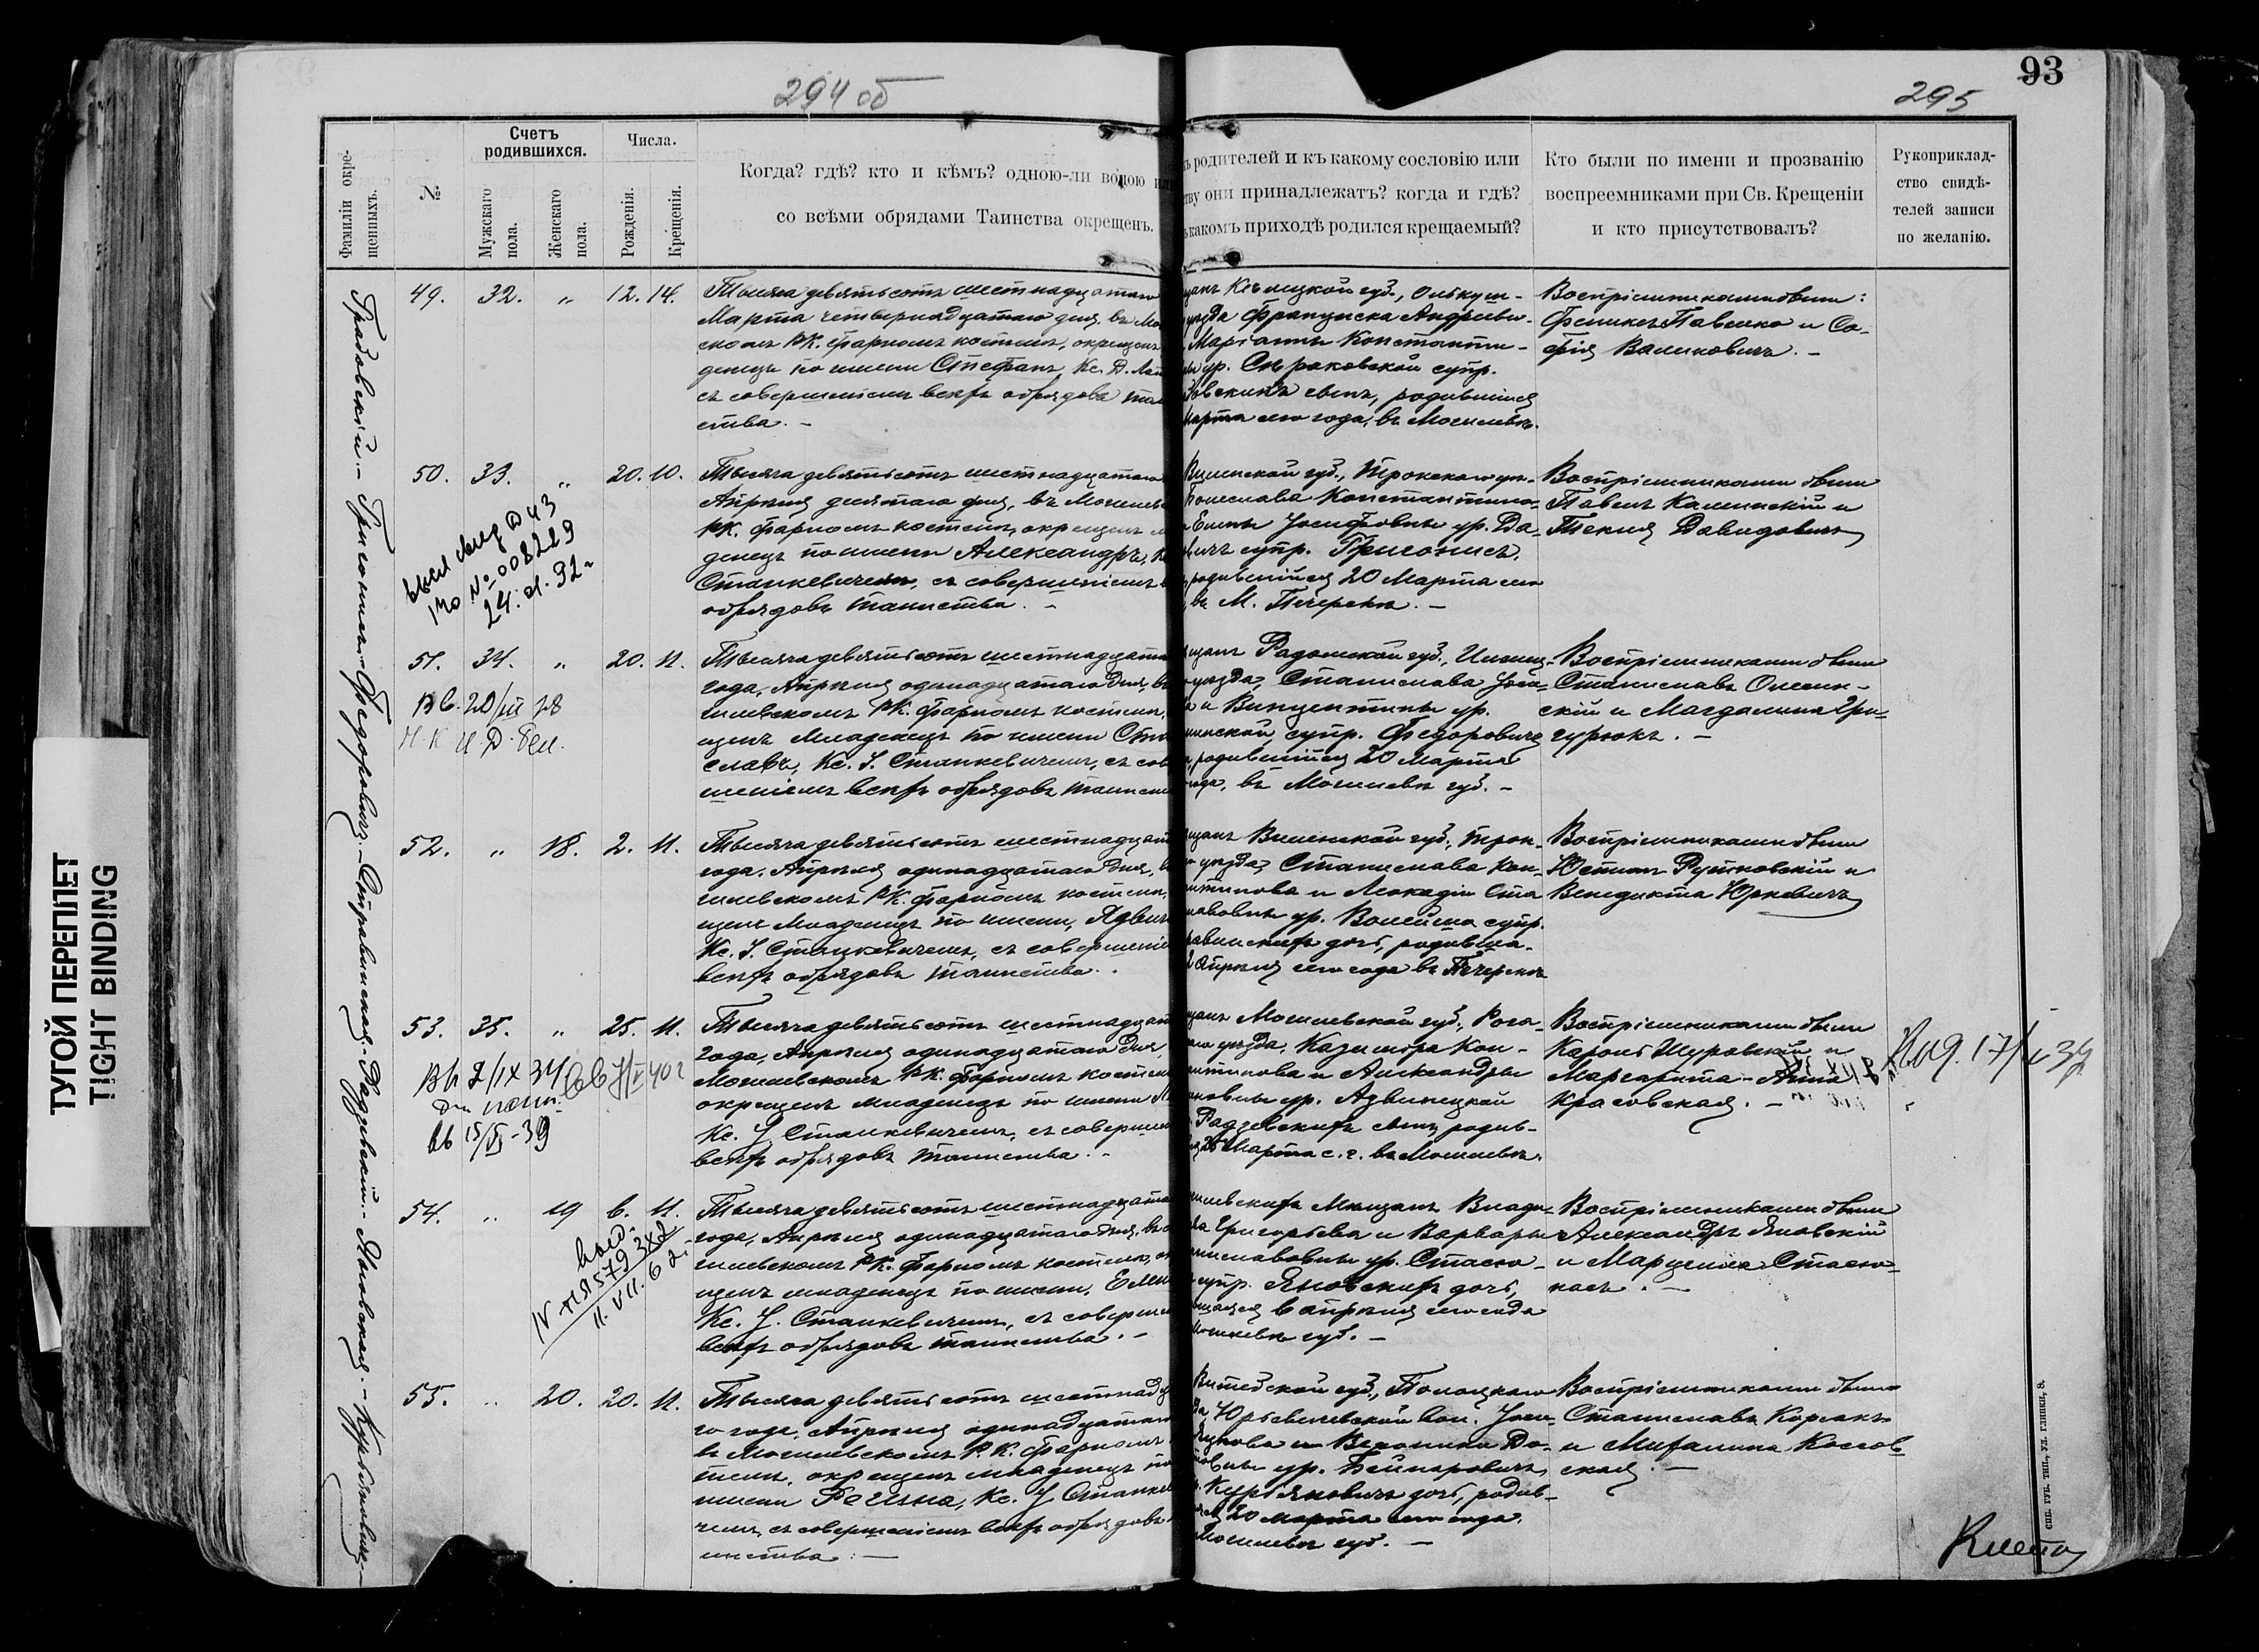 294 об
93
295
ТУГОЙ ПЕРЕПЛЕТ
TIGHT BINDING
Фамиліи окре-
щенныхъ.
№
Счетъ
родившихся.
Мужскаго
пола.
Женскаго
пола.
Числа.
Рожденія.
Крещенія.
Когда? гдѣ? кто и кѣмъ? одною-ли водою ил
со всѣми обрядами Таинства окрещенъ.
ъ родителей и къ какому сословію или
тву они принадлежатъ? когда и гдѣ?
какомъ приходѣ родился крещаемый?
Кто были по имени и прозванію
воспреемниками при Св. Крещеніи
и кто присутствовалъ?
Рукоприклад-
ство свидѣ-
телей записи
по желанію.
49. 32. " 12. 14.
Тысяча девятьсотъ шестнадцатаго
Марта четырнадцатаго дня, въ Мо
скомъ РК. фарномъ костелѣ, окрещенъ
денецъ по имени Стефанъ, Кс. Д.
съ совершеніемъ всѣхъ обрядовъ таи
ства. –
щанъ Кѣлецкой губ., Олькуш-
уѣзда Франциска Андрееви-
Маріанны Константи-
ур. Сыраковской супр.
овскихъ сынъ, родившійся
Марта сего года, въ Могилевѣ.
Воспріемниками были:
Феликсъ Павелко и Со-
фія Валиковичъ. –
50. 33. " 20. 10.
Тысяча девятьсотъ шестнадцатаго
Апрѣля десятаго дня, въ Могилев
РК. фарномъ костелѣ, окрещенъ м
денецъ по имени Александръ, К
Станкевичемъ, съ совершеніемъ в
обрядовъ таинства. –
Виленской губ., Трокскаго уѣ-
Болеслава Константино-
Елены Іосифовны ур. Да-
вичъ супр. Григонисъ,
родившійся 20 Марта сего
въ М. Печерскѣ. –
Воспріемниками были
Павелъ Калинскій и
Текля Давидовичъ
№ 008229
51. 34. " 20. 11.
Вв. 20/III 28
Н. К. И. Д. Бел.
Тысяча девятьсотъ шестнадцата
года, Апрѣля одинадцатаго дня, въ
гилевскомъ РК. фарномъ костелѣ,
щенъ младенецъ по имени Ста
славъ, Кс. І. Станкевичемъ, съ сов
шеніемъ всѣхъ обрядовъ таинств
щанъ Радомской губ.,
уѣзда, Станислава Іоси-
и Винцентины ур.
инской, супр. Федоровичъ
родившійся 20 Марта
года, въ Могилевѣ губ. –
Воспріемниками были
Станиславъ Олешин-
скій и Магдалина Гри-
гурюкъ. –
52. " 18. 2. 11.
Тысяча девятьсотъ шестнадцат
года, Апрѣля одинадцатаго дня, в
гилевскомъ РК. фарномъ костелѣ,
щенъ младенецъ по имени, Ядвиг
Кс. І. Станкевичемъ, съ совершеніе
всѣхъ обрядовъ таинства.
щанъ Виленской губ., Трок-
уѣзда, Станислава Кон-
нтинова и Леокадіи Ста
лавовны ур. Волейша супр.
равинскихъ дочь, родивша-
2 Апрѣля сего года въ Печерскѣ
Воспріемниками были
Юстинъ Рутковскій и
Бенедикта Юркевичъ
53. 35. " 25. 11.
Тысяча девятьсотъ шестнадцат
года, Апрѣля одинадцатаго дня,
Могилевскомъ РК. фарномъ костел
окрещенъ младенецъ по имени
Кс. І. Станкевичемъ, съ соверше
всѣхъ обрядовъ таинства. –
щанъ Могилевской губ., Рога-
го уѣзда, Казиміра Кон-
нтинова и Александры
новны ур. Адвинецкой
Радзевскихъ сынъ родив-
25 Марта с. г. въ Могилевѣ.
Воспріемниками были
Кароль Щуровскій и
Маргарита-Анна
Красовская. –
54. " 19 6. 11.
Тысяча девятьсотъ шестнадцата
года, Апрѣля одинадцатаго дня, въ
гилевскомъ РК. фарномъ костелѣ, о
щенъ младенецъ по имени, Елен
Кс. І. Станкевичемъ, съ соверше
всѣхъ обрядовъ таинства. –
гилевскихъ Мѣщанъ Влади-
ра Григорьева и Варвары
ниславовны ур. Стасю-
супр. Яновскихъ дочь,
шаяся 6 апрѣля сего года
Могилевѣ губ. –
Воспріемниками были
Александръ Яновскій
и Марцелла Стасю-
касъ. –
11. VII. 62.
55. " 20. 20. 11.
Тысяча девятьсотъ шестнадц
го года, Апрѣля одинадцатаго
въ Могилевскомъ Р.К. фарномъ
телѣ, окрещенъ младенецъ по
имени Регина, Кс. І. Станкев
чемъ, съ совершеніемъ всѣхъ обрядовъ
инства: –
Витебской губ., Полоцкаго
Юрьевичевской вол. Іоси-
ур. Бейнаровичъ
Курьяновичъ дочь, родив-
20 марта сего года,
Могилевѣ губ. –
Воспріемниками были
Станиславъ Корсакъ
и Михалина Косов-
ская. –
Грабовскій. – Григонисъ. – Федоровичъ. – Стравинская. – Радзевскій. – Яновская. – Курьяновичъ. –
СПБ. ГУБ. ТИП., УЛ. ГЛИНКИ, 8.